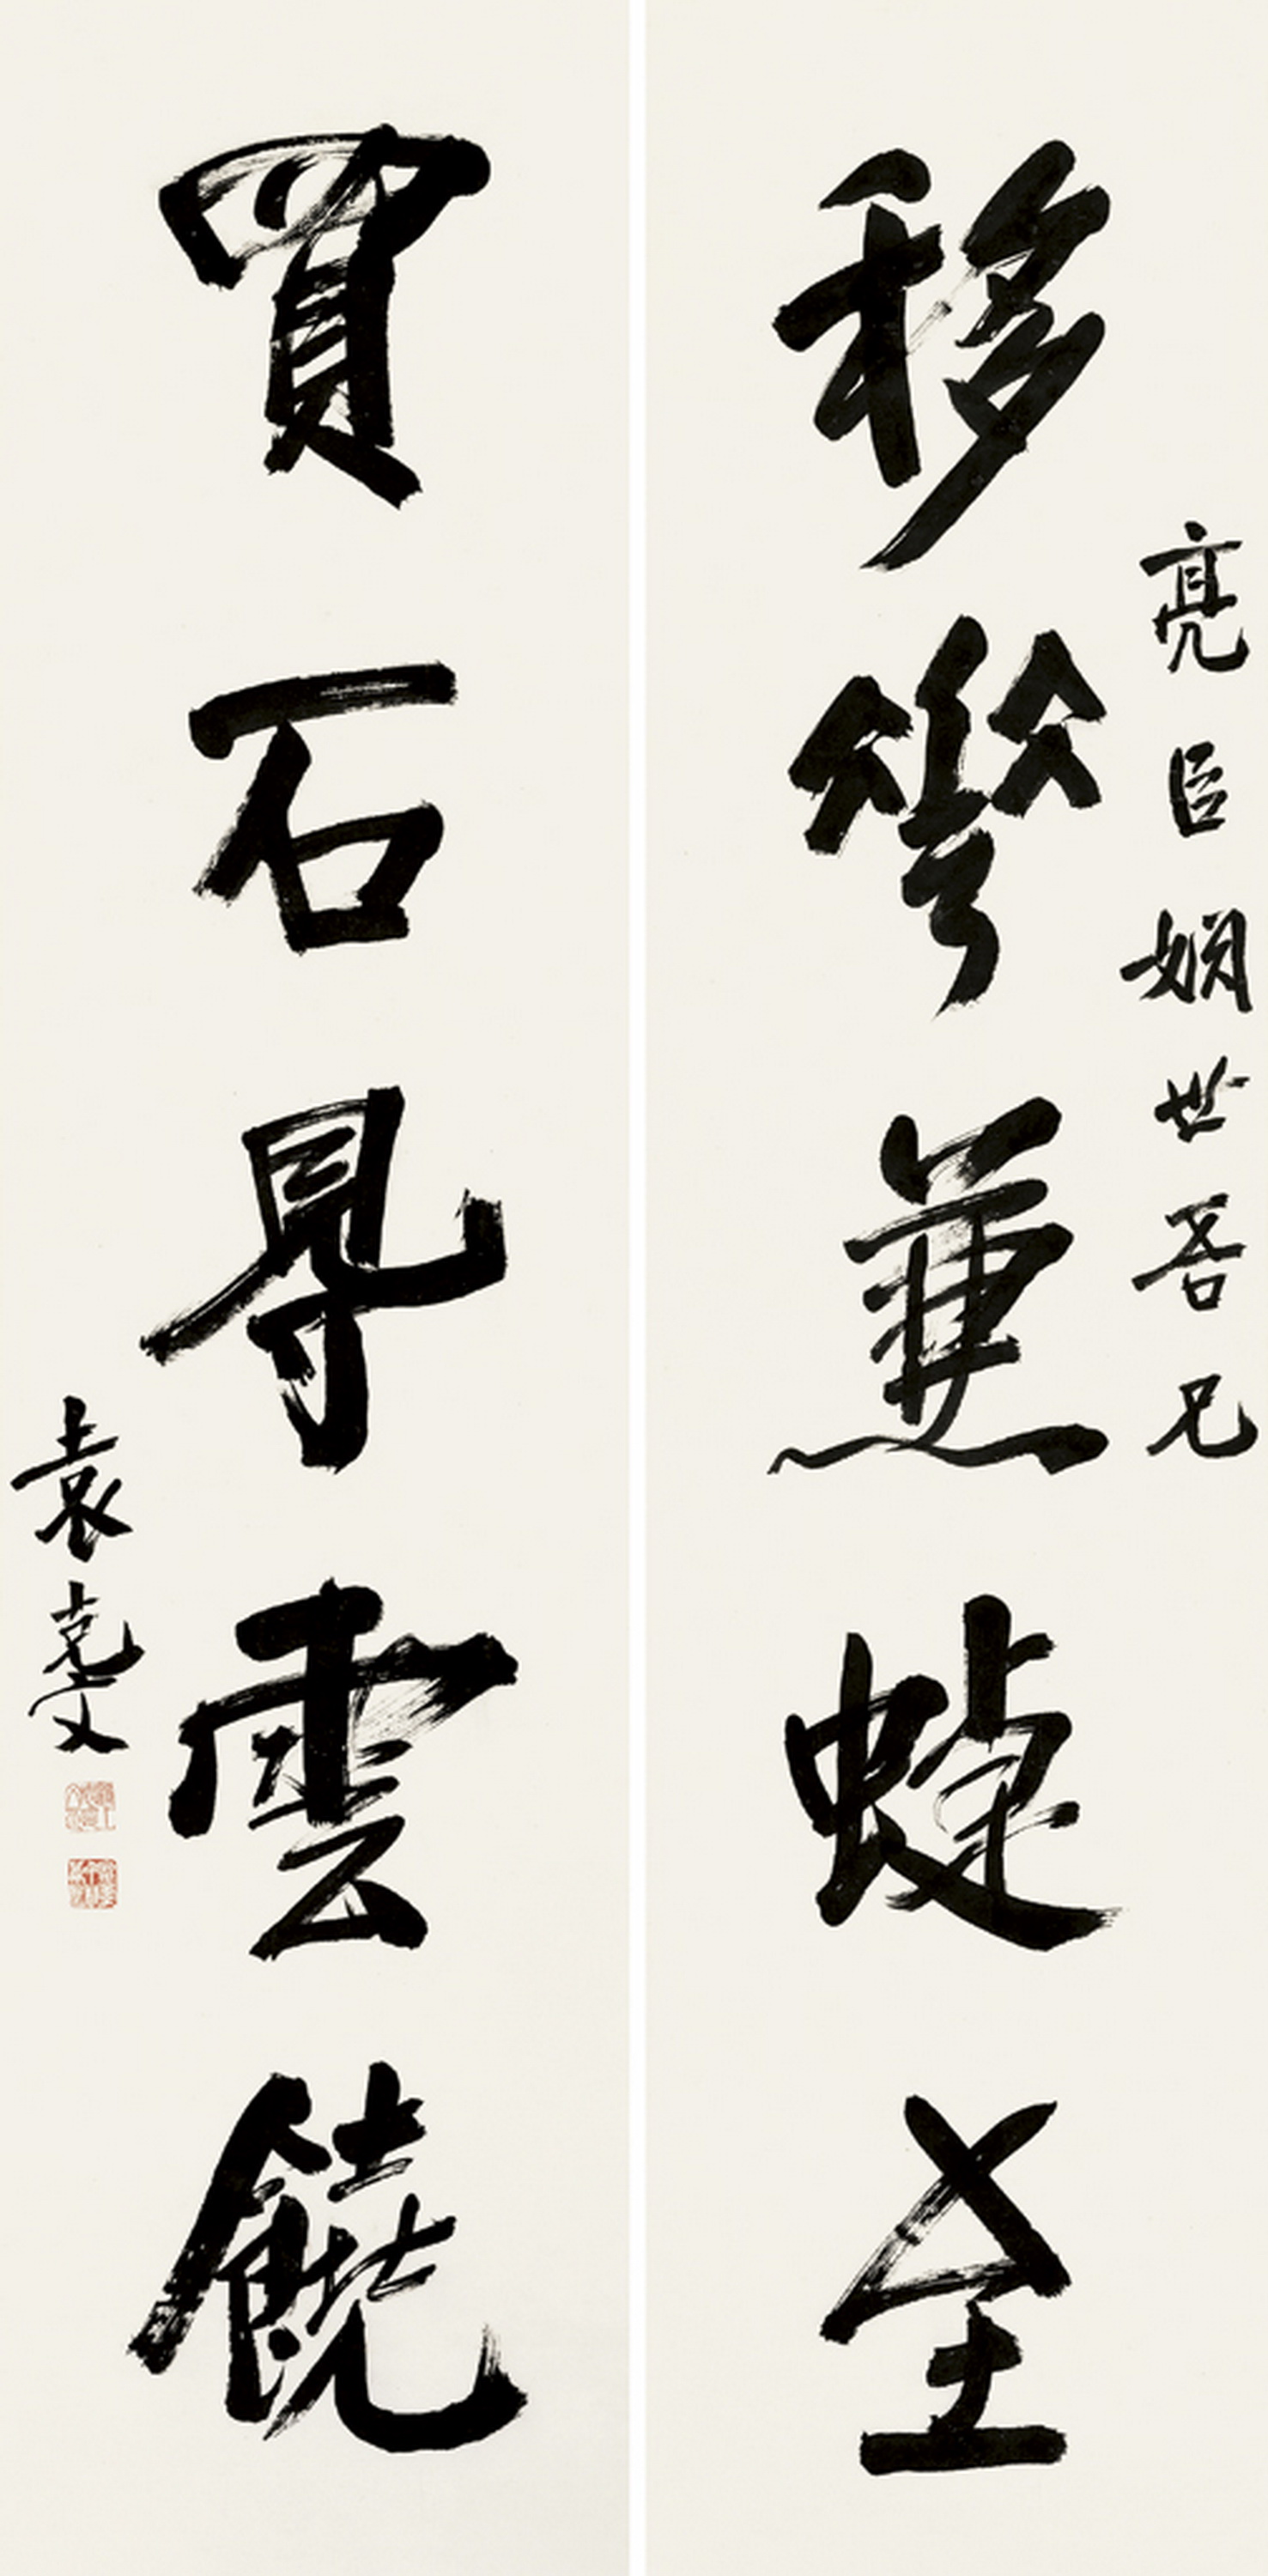 亮臣姻世吾兄
移花兼蜨至
買石得雲饒
袁克文